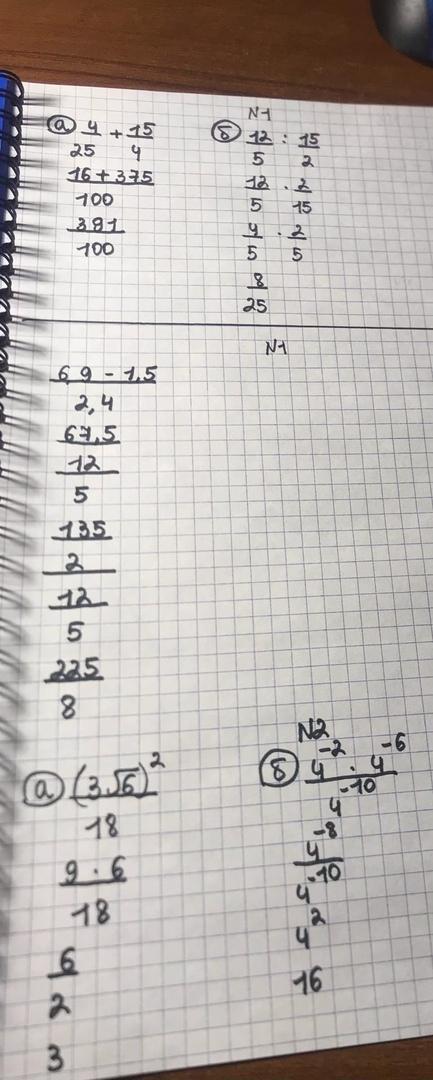 N1
а) 4/25 + 15/4
(16 + 375)/100
391/100
б) 12/5 : 15/2
12/5 · 2/15
4/5 · 2/5
8/25
N1
(69 - 1,5)/2,4
67,5/(12/5)
(135/2)/(12/5)
225/8
N2
а) (3√6)²/18
(9 · 6)/18
6/2
3
б) (4⁻² · 4⁻⁶)/4⁻¹⁰
4⁻⁸/4⁻¹⁰
4²
16